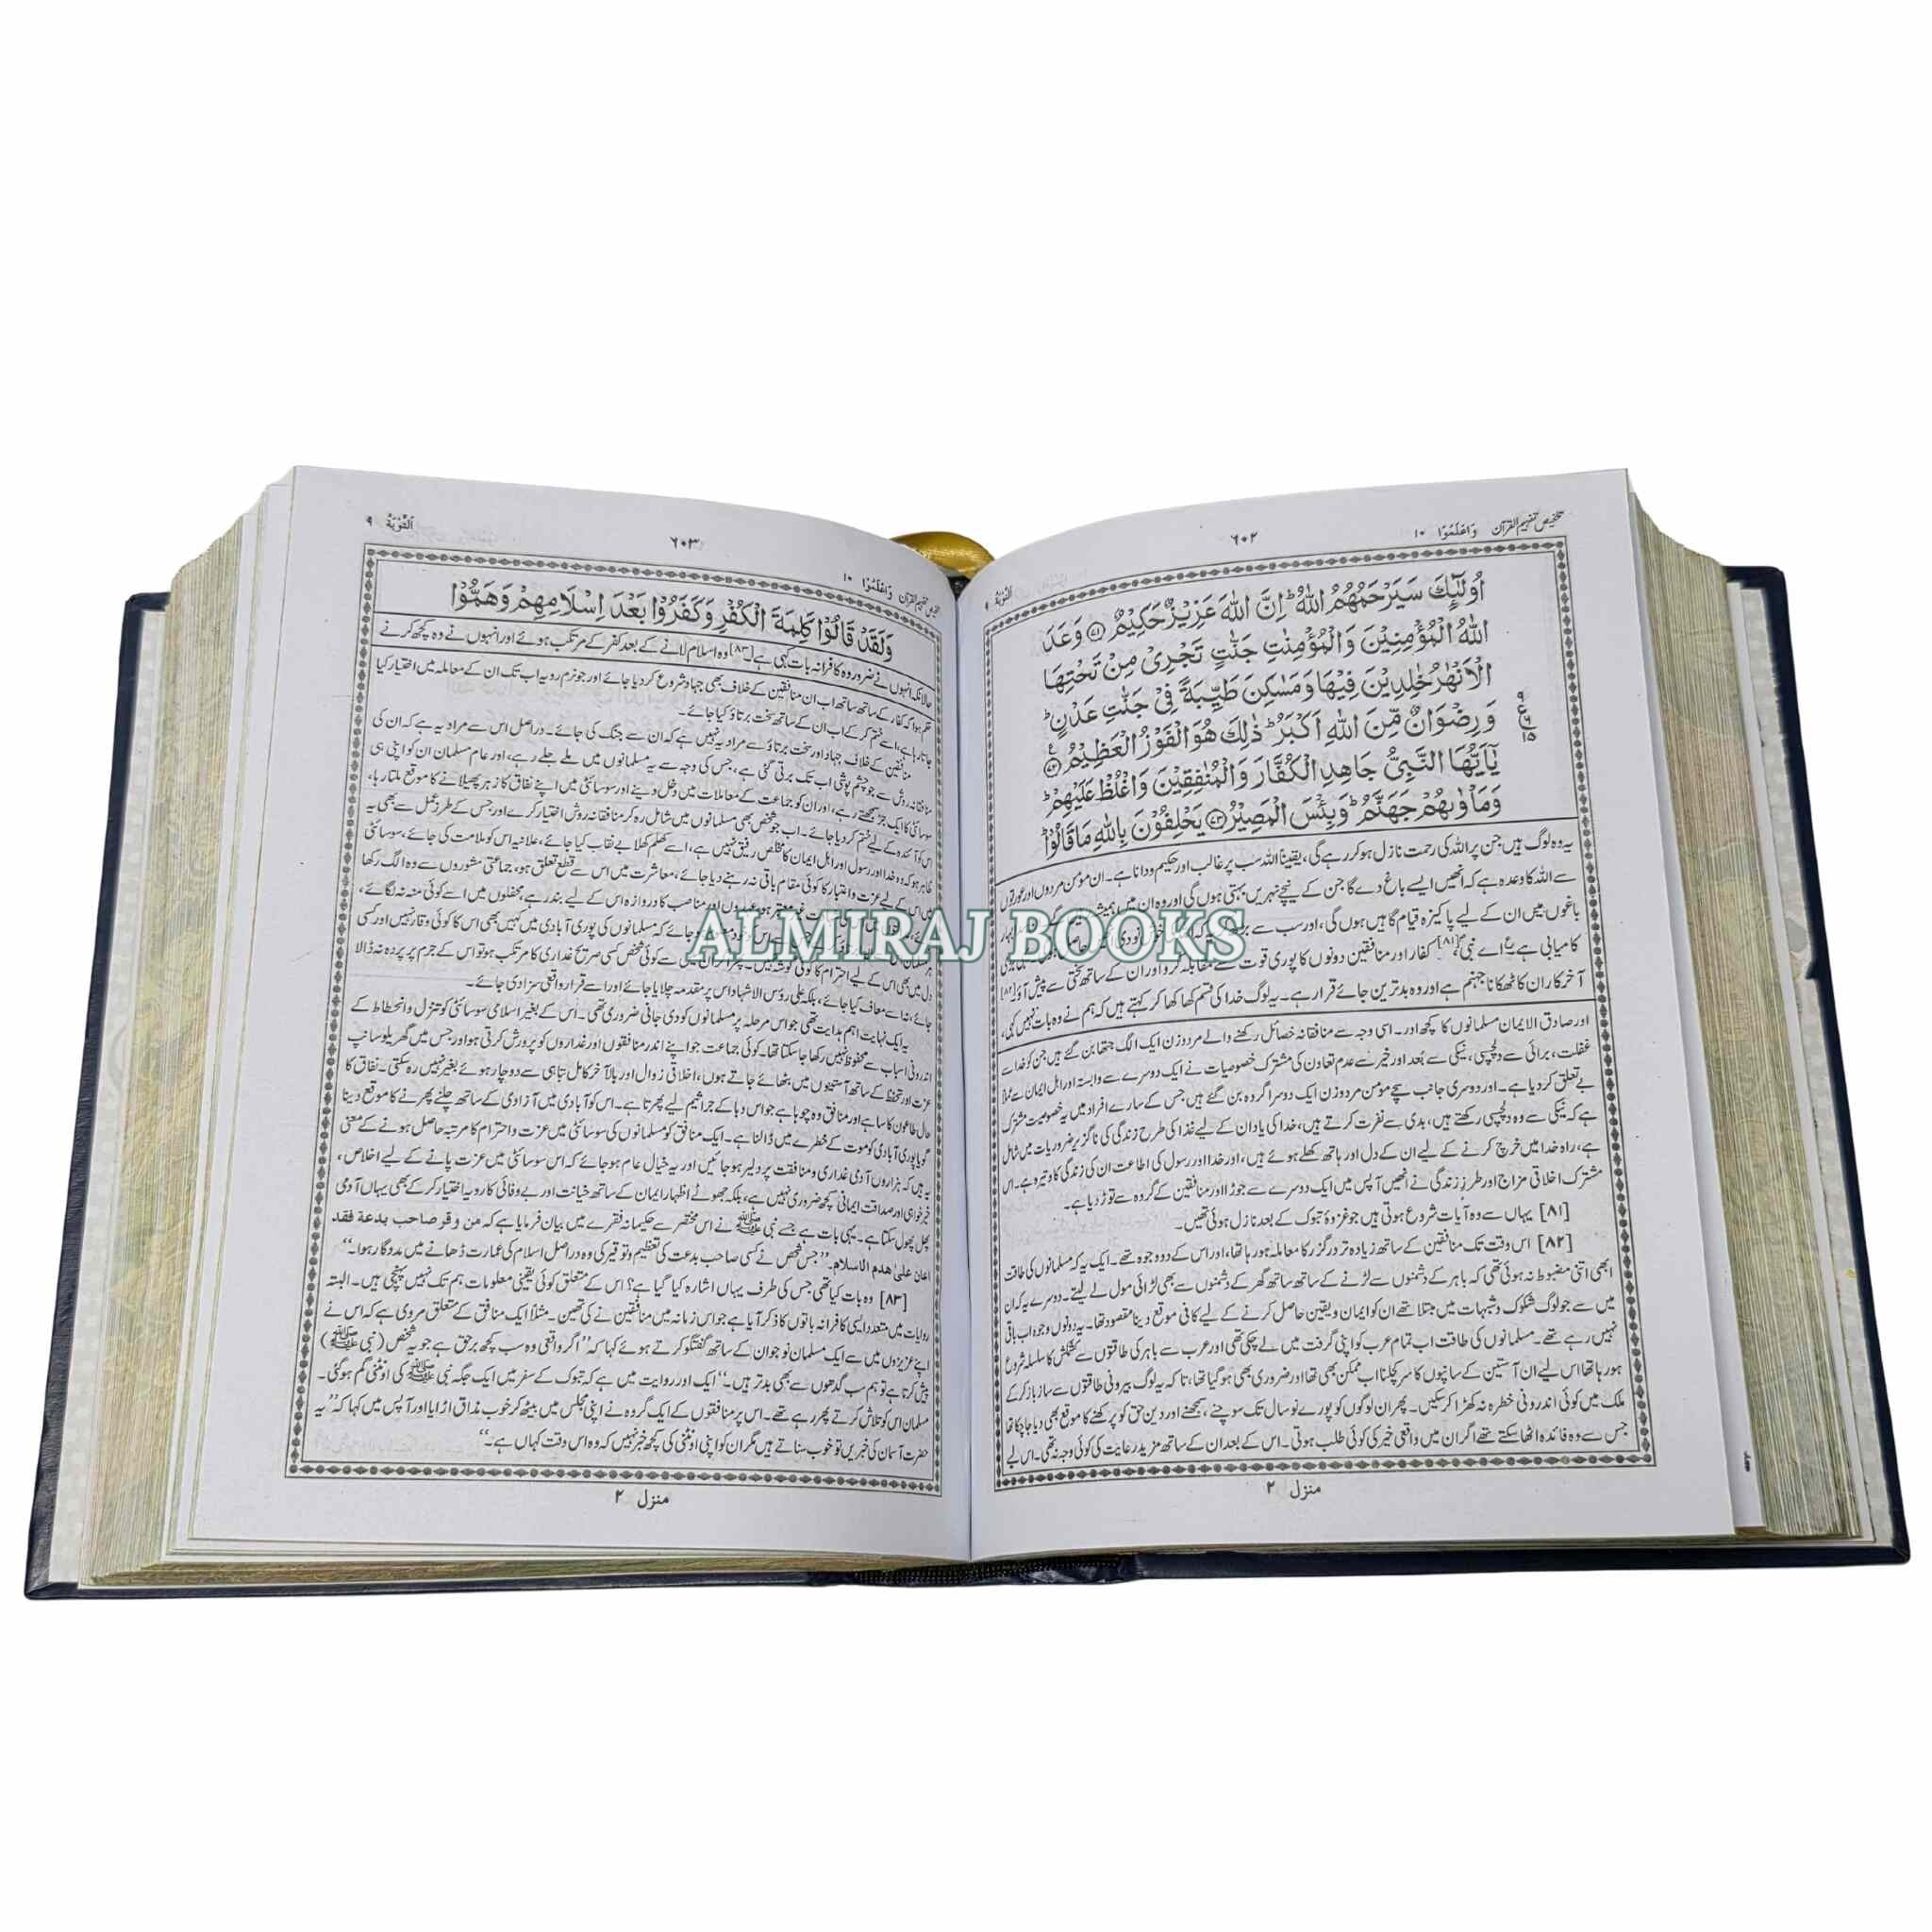 تلخیص تفہیم القرآن وَاعْلَمُوْا ۱۰
۶۰۲
التوبة ۹
اُولٰٓئِكَ سَيَرْحَمُهُمُ اللّٰهُ ؕ اِنَّ اللّٰهَ عَزِيْزٌ حَكِيْمٌ ۷۱ وَعَدَ
اللّٰهُ الْمُؤْمِنِيْنَ وَالْمُؤْمِنٰتِ جَنّٰتٍ تَجْرِيْ مِنْ تَحْتِهَا
الْاَنْهٰرُ خٰلِدِيْنَ فِيْهَا وَمَسٰكِنَ طَيِّبَةً فِيْ جَنّٰتِ عَدْنٍ ؕ
وَرِضْوَانٌ مِّنَ اللّٰهِ اَكْبَرُ ؕ ذٰلِكَ هُوَ الْفَوْزُ الْعَظِيْمُ ۷۲
يٰۤاَيُّهَا النَّبِيُّ جَاهِدِ الْكُفَّارَ وَالْمُنٰفِقِيْنَ وَاغْلُظْ عَلَيْهِمْ ؕ
وَمَاْوٰىهُمْ جَهَنَّمُ ؕ وَبِئْسَ الْمَصِيْرُ ۷۳ يَحْلِفُوْنَ بِاللّٰهِ مَا قَالُوْا ؕ
یہ وہ لوگ ہیں جن پر اللہ کی رحمت نازل ہو کر رہے گی، یقیناً اللہ سب پر غالب اور حکیم و دانا ہے۔ ان مومن مردوں اور عورتوں
سے اللہ کا وعدہ ہے کہ انھیں ایسے باغ دے گا جن کے نیچے نہریں بہتی ہوں گی اور وہ ان میں ہمیشہ
باغوں میں ان کے لیے پاکیزہ قیام گاہیں ہوں گی، اور سب سے
کامیابی ہے اے نبیؐ، [۸۱] کفار اور منافقین دونوں کا پوری قوت سے مقابلہ کرو اور ان کے ساتھ سختی سے پیش آؤ [۸۲]
آخر کار ان کا ٹھکانا جہنم ہے اور وہ بدترین جائے قرار ہے۔ یہ لوگ خدا کی قسم کھا کھا کر کہتے ہیں کہ ہم نے وہ بات نہیں کہی،
اور صادق الایمان مسلمانوں کا کچھ اور۔ اسی وجہ سے منافقانہ خصائل رکھنے والے مرد و زن ایک الگ جتھا بن گئے ہیں جن کو خدا سے
غفلت، برائی سے دلچسپی، نیکی سے بُعد اور خیر سے عدم تعاون کی مشترک خصوصیات نے ایک دوسرے سے وابستہ اور اہل ایمان سے عملاً
بے تعلق کر دیا ہے۔ اور دوسری جانب سچے مومن مرد و زن ایک دوسرا گروہ بن گئے ہیں جس کے سارے افراد میں یہ خصوصیت مشترک
ہے کہ نیکی سے وہ دلچسپی رکھتے ہیں، بدی سے نفرت کرتے ہیں، خدا کی یاد ان کے لیے غذا کی طرح زندگی کی ناگزیر ضروریات میں شامل
ہے، راہ خدا میں خرچ کرنے کے لیے ان کے دل اور ہاتھ کھلے ہوئے ہیں، اور خدا اور رسول کی اطاعت ان کی زندگی کا وتیرہ ہے۔ اس
مشترک اخلاقی مزاج اور طرز زندگی نے انھیں آپس میں ایک دوسرے سے جوڑا اور منافقین کے گروہ سے توڑ دیا ہے۔
[۸۱] یہاں سے وہ آیات شروع ہوتی ہیں جو غزوۂ تبوک کے بعد نازل ہوئی تھیں۔
[۸۲] اس وقت تک منافقین کے ساتھ زیادہ تر درگزر کا معاملہ ہو رہا تھا، اور اس کے دو وجوہ تھے۔ ایک یہ کہ مسلمانوں کی طاقت
ابھی اتنی مضبوط نہ ہوئی تھی کہ باہر کے دشمنوں سے لڑنے کے ساتھ ساتھ گھر کے دشمنوں سے بھی لڑائی مول لے لیتے۔ دوسرے یہ کہ ان
میں سے جو لوگ شکوک و شبہات میں مبتلا تھے ان کو ایمان و یقین حاصل کرنے کے لیے کافی موقع دینا مقصود تھا۔ یہ دونوں وجوہ اب باقی
نہیں رہے تھے۔ مسلمانوں کی طاقت اب تمام عرب کو اپنی گرفت میں لے چکی تھی اور عرب سے باہر کی طاقتوں سے کشمکش کا سلسلہ شروع
ہو رہا تھا اس لیے ان آستین کے سانپوں کا سر کچلنا اب ممکن بھی تھا اور ضروری بھی ہو گیا تھا، تاکہ یہ لوگ بیرونی طاقتوں سے ساز باز کر کے
ملک میں کوئی اندرونی خطرہ نہ کھڑا کر سکیں۔ پھر ان لوگوں کو پورے نو سال تک سوچنے، سمجھنے اور دین حق کو پرکھنے کا موقع بھی دیا جا چکا تھا
جس سے وہ فائدہ اٹھا سکتے تھے اگر ان میں واقعی خیر کی کوئی طلب ہوتی۔ اس کے بعد ان کے ساتھ مزید رعایت کی کوئی وجہ نہ تھی۔ اس لیے
منزل ۲
وَاعْلَمُوْا ۱۰
۶۰۳
التوبة ۹
وَلَقَدْ قَالُوْا كَلِمَةَ الْكُفْرِ وَكَفَرُوْا بَعْدَ اِسْلَامِهِمْ وَهَمُّوْا
حالانکہ انہوں نے ضرور وہ کافرانہ بات کہی ہے۔ [۸۳] وہ اسلام لانے کے بعد کفر کے مرتکب ہوئے اور انہوں نے وہ کچھ کرنے
حکم ہوا کہ کفار کے ساتھ ساتھ اب ان منافقین کے خلاف بھی جہاد شروع کر دیا جائے اور جو نرم رویہ اب تک ان کے معاملہ میں اختیار کیا
جاتا رہا ہے، اسے ختم کر کے اب ان کے ساتھ سخت برتاؤ کیا جائے۔
منافقین کے خلاف جہاد اور سخت برتاؤ سے مراد یہ نہیں ہے کہ ان سے جنگ کی جائے۔ دراصل اس سے مراد یہ ہے کہ ان کی
منافقانہ روش سے جو چشم پوشی اب تک برتی گئی ہے، جس کی وجہ سے یہ مسلمانوں میں ملے جلے رہے، اور عام مسلمان ان کو اپنی ہی
سوسائٹی کا ایک جز سمجھتے رہے، اور ان کو جماعت کے معاملات میں دخل دینے اور سوسائٹی میں اپنے نفاق کا زہر پھیلانے کا موقع ملتا رہا،
اس کو آئندہ کے لیے ختم کر دیا جائے۔ اب جو شخص بھی مسلمانوں میں شامل رہ کر منافقانہ روش اختیار کرے اور جس کے طرز عمل سے بھی یہ
ظاہر ہو کہ وہ خدا اور رسول اور اہل ایمان کا مخلص رفیق نہیں ہے، اسے کھلم کھلا بے نقاب کیا جائے، علانیہ اس کو ملامت کی جائے، سوسائٹی
میں اس کے لیے عزت و اعتبار کا کوئی مقام باقی نہ رہنے دیا جائے، معاشرت میں اس سے قطع تعلق ہو، جماعتی مشوروں سے وہ الگ رکھا
عہدوں اور مناصب کا دروازہ اس کے لیے بند رہے، محفلوں میں اسے کوئی منہ نہ لگائے،
جائے کہ مسلمانوں کی پوری آبادی میں کہیں بھی اس کا کوئی وقار نہیں اور کسی
دل میں بھی اس کے لیے احترام کا کوئی گوشہ نہیں۔ پھر اگر ان میں سے کوئی شخص کسی صریح غداری کا مرتکب ہو تو اس کے جرم پر پردہ نہ ڈالا
جائے، نہ اسے معاف کیا جائے، بلکہ علی رؤس الاشہاد اس پر مقدمہ چلایا جائے اور اسے قرار واقعی سزا دی جائے۔
یہ ایک نہایت اہم ہدایت تھی جو اس مرحلہ پر مسلمانوں کو دی جانی ضروری تھی۔ اس کے بغیر اسلامی سوسائٹی کو تنزل و انحطاط کے
اندرونی اسباب سے محفوظ نہیں رکھا جا سکتا تھا۔ کوئی جماعت جو اپنے اندر منافقوں اور غداروں کو پرورش کرتی ہو اور جس میں گھریلو سانپ
عزت اور تحفظ کے ساتھ آستینوں میں بٹھائے جاتے ہوں، اخلاقی زوال اور بالآخر کامل تباہی سے دوچار ہوئے بغیر نہیں رہ سکتی۔ نفاق کا
حال طاعون کا سا ہے اور منافق وہ چوہا ہے جو اس وبا کے جراثیم لیے پھرتا ہے۔ اس کو آبادی میں آزادی کے ساتھ چلنے پھرنے کا موقع دینا
گویا پوری آبادی کو موت کے خطرے میں ڈالنا ہے۔ ایک منافق کو مسلمانوں کی سوسائٹی میں عزت و احترام کا مرتبہ حاصل ہونے کے معنی
یہ ہیں کہ ہزاروں آدمی غداری و منافقت پر دلیر ہو جائیں اور یہ خیال عام ہو جائے کہ اس سوسائٹی میں عزت پانے کے لیے اخلاص،
خیر خواہی اور صداقت ایمانی کچھ ضروری نہیں ہے، بلکہ جھوٹے اظہار ایمان کے ساتھ خیانت اور بے وفائی کا رویہ اختیار کر کے بھی یہاں آدمی
پھل پھول سکتا ہے۔ یہی بات ہے جسے نبی ﷺ نے اس مختصر سے حکیمانہ فقرے میں بیان فرمایا ہے کہ من وقر صاحب بدعة فقد
اعان علیٰ ھدم الاسلام۔ ”جس شخص نے کسی صاحب بدعت کی تعظیم و توقیر کی وہ دراصل اسلام کی عمارت ڈھانے میں مددگار ہوا۔“
[۸۳] وہ بات کیا تھی جس کی طرف یہاں اشارہ کیا گیا ہے؟ اس کے متعلق کوئی یقینی معلومات ہم تک نہیں پہنچی ہیں۔ البتہ
روایات میں متعدد ایسی کافرانہ باتوں کا ذکر آیا ہے جو اس زمانہ میں منافقین نے کی تھیں۔ مثلاً ایک منافق کے متعلق مروی ہے کہ اس نے
اپنے عزیزوں میں سے ایک مسلمان نوجوان کے ساتھ گفتگو کرتے ہوئے کہا کہ ”اگر واقعی وہ سب کچھ برحق ہے جو یہ شخص (نبی ﷺ)
پیش کرتا ہے تو ہم سب گدھوں سے بھی بدتر ہیں۔“ ایک اور روایت میں ہے کہ تبوک کے سفر میں ایک جگہ نبی ﷺ کی اونٹنی گم ہو گئی۔
مسلمان اس کو تلاش کرتے پھر رہے تھے۔ اس پر منافقوں کے ایک گروہ نے اپنی مجلس میں بیٹھ کر خوب مذاق اڑایا اور آپس میں کہا کہ ”یہ
حضرت آسمان کی خبریں تو خوب سناتے ہیں مگر ان کو اپنی اونٹنی کی کچھ خبر نہیں کہ وہ اس وقت کہاں ہے۔“
منزل ۲
ALMIRAJ BOOKS